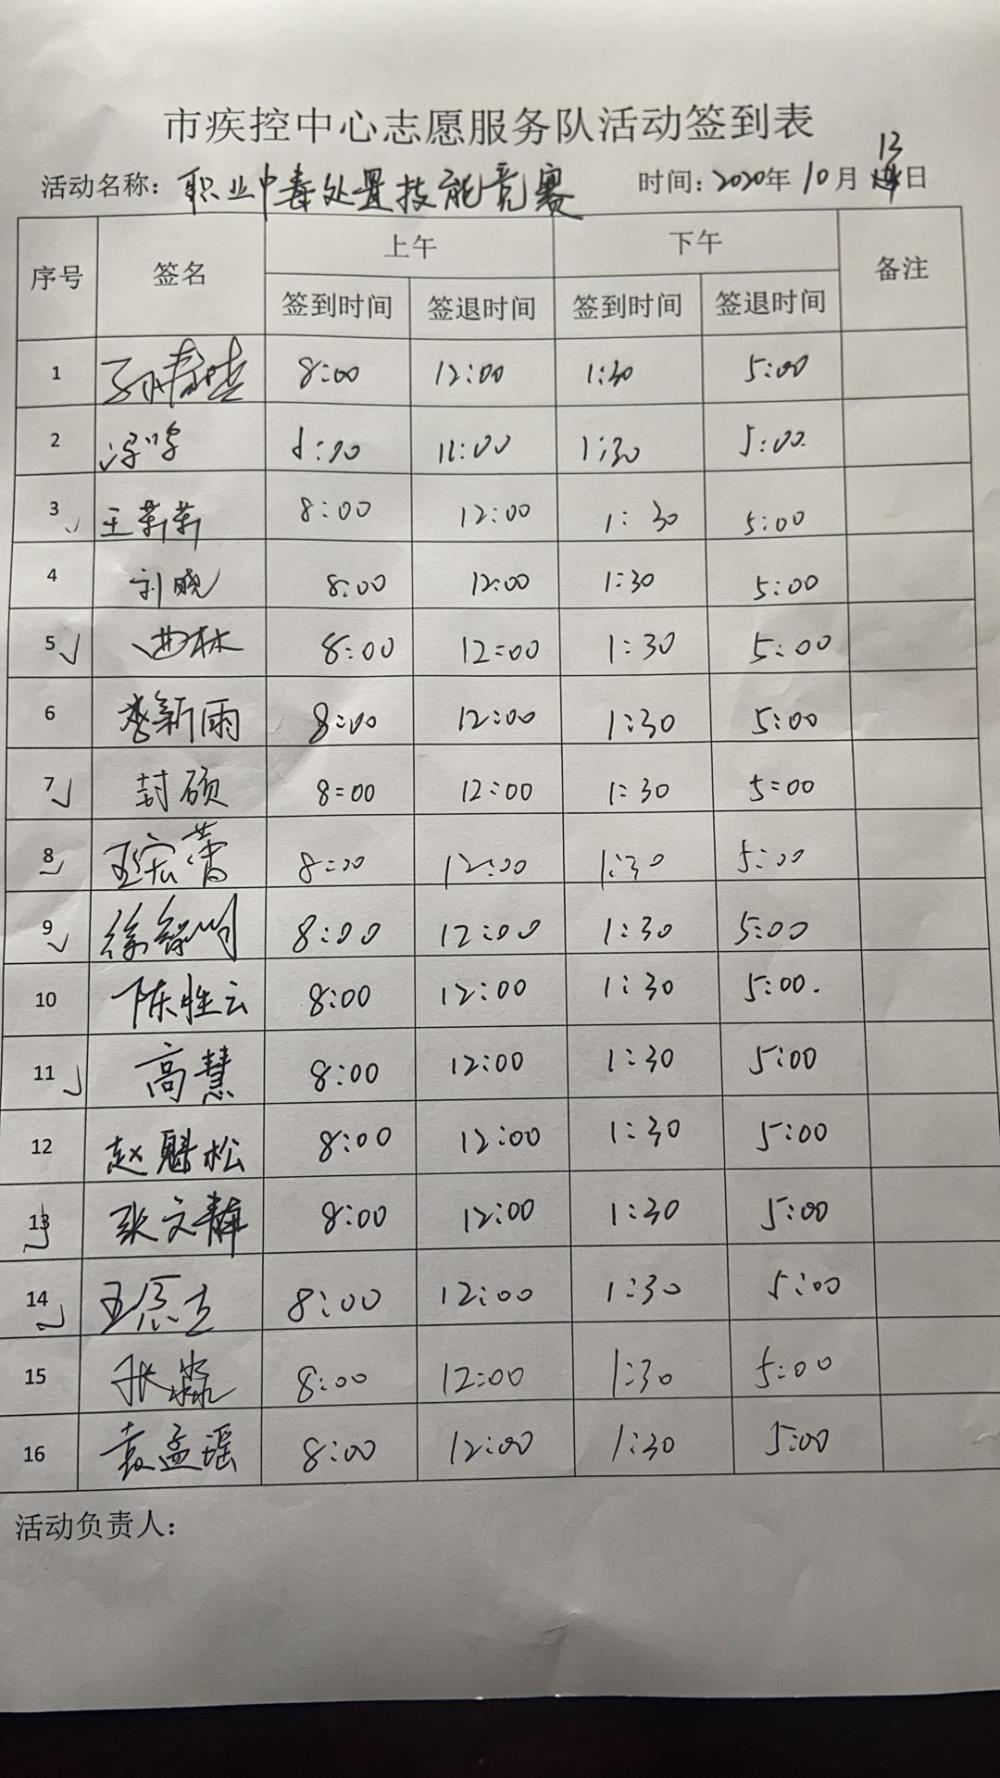 市疾控中心志愿服务队活动签到表
活动名称: 职业中毒处置技能竞赛 时间: 2020年10月13日
序号 签名 上午 下午 备注
签到时间 签退时间 签到时间 签退时间
1 8:00 12:00 1:30 5:00
2 8:00 11:00 1:30 5:00
3 王莉莉 8:00 12:00 1:30 5:00
4 刘晓 8:00 12:00 1:30 5:00
5 曲林 8:00 12:00 1:30 5:00
6 李新雨 8:00 12:00 1:30 5:00
7 封硕 8:00 12:00 1:30 5:00
8 王宏蕾 8:00 12:00 1:30 5:00
9 8:00 12:00 1:30 5:00
10 陈胜云 8:00 12:00 1:30 5:00.
11 高慧 8:00 12:00 1:30 5:00
12 赵魁松 8:00 12:00 1:30 5:00
13 张文静 8:00 12:00 1:30 5:00
14 8:00 12:00 1:30 5:00
15 张淼 8:00 12:00 1:30 5:00
16 袁孟瑶 8:00 12:00 1:30 5:00
活动负责人: